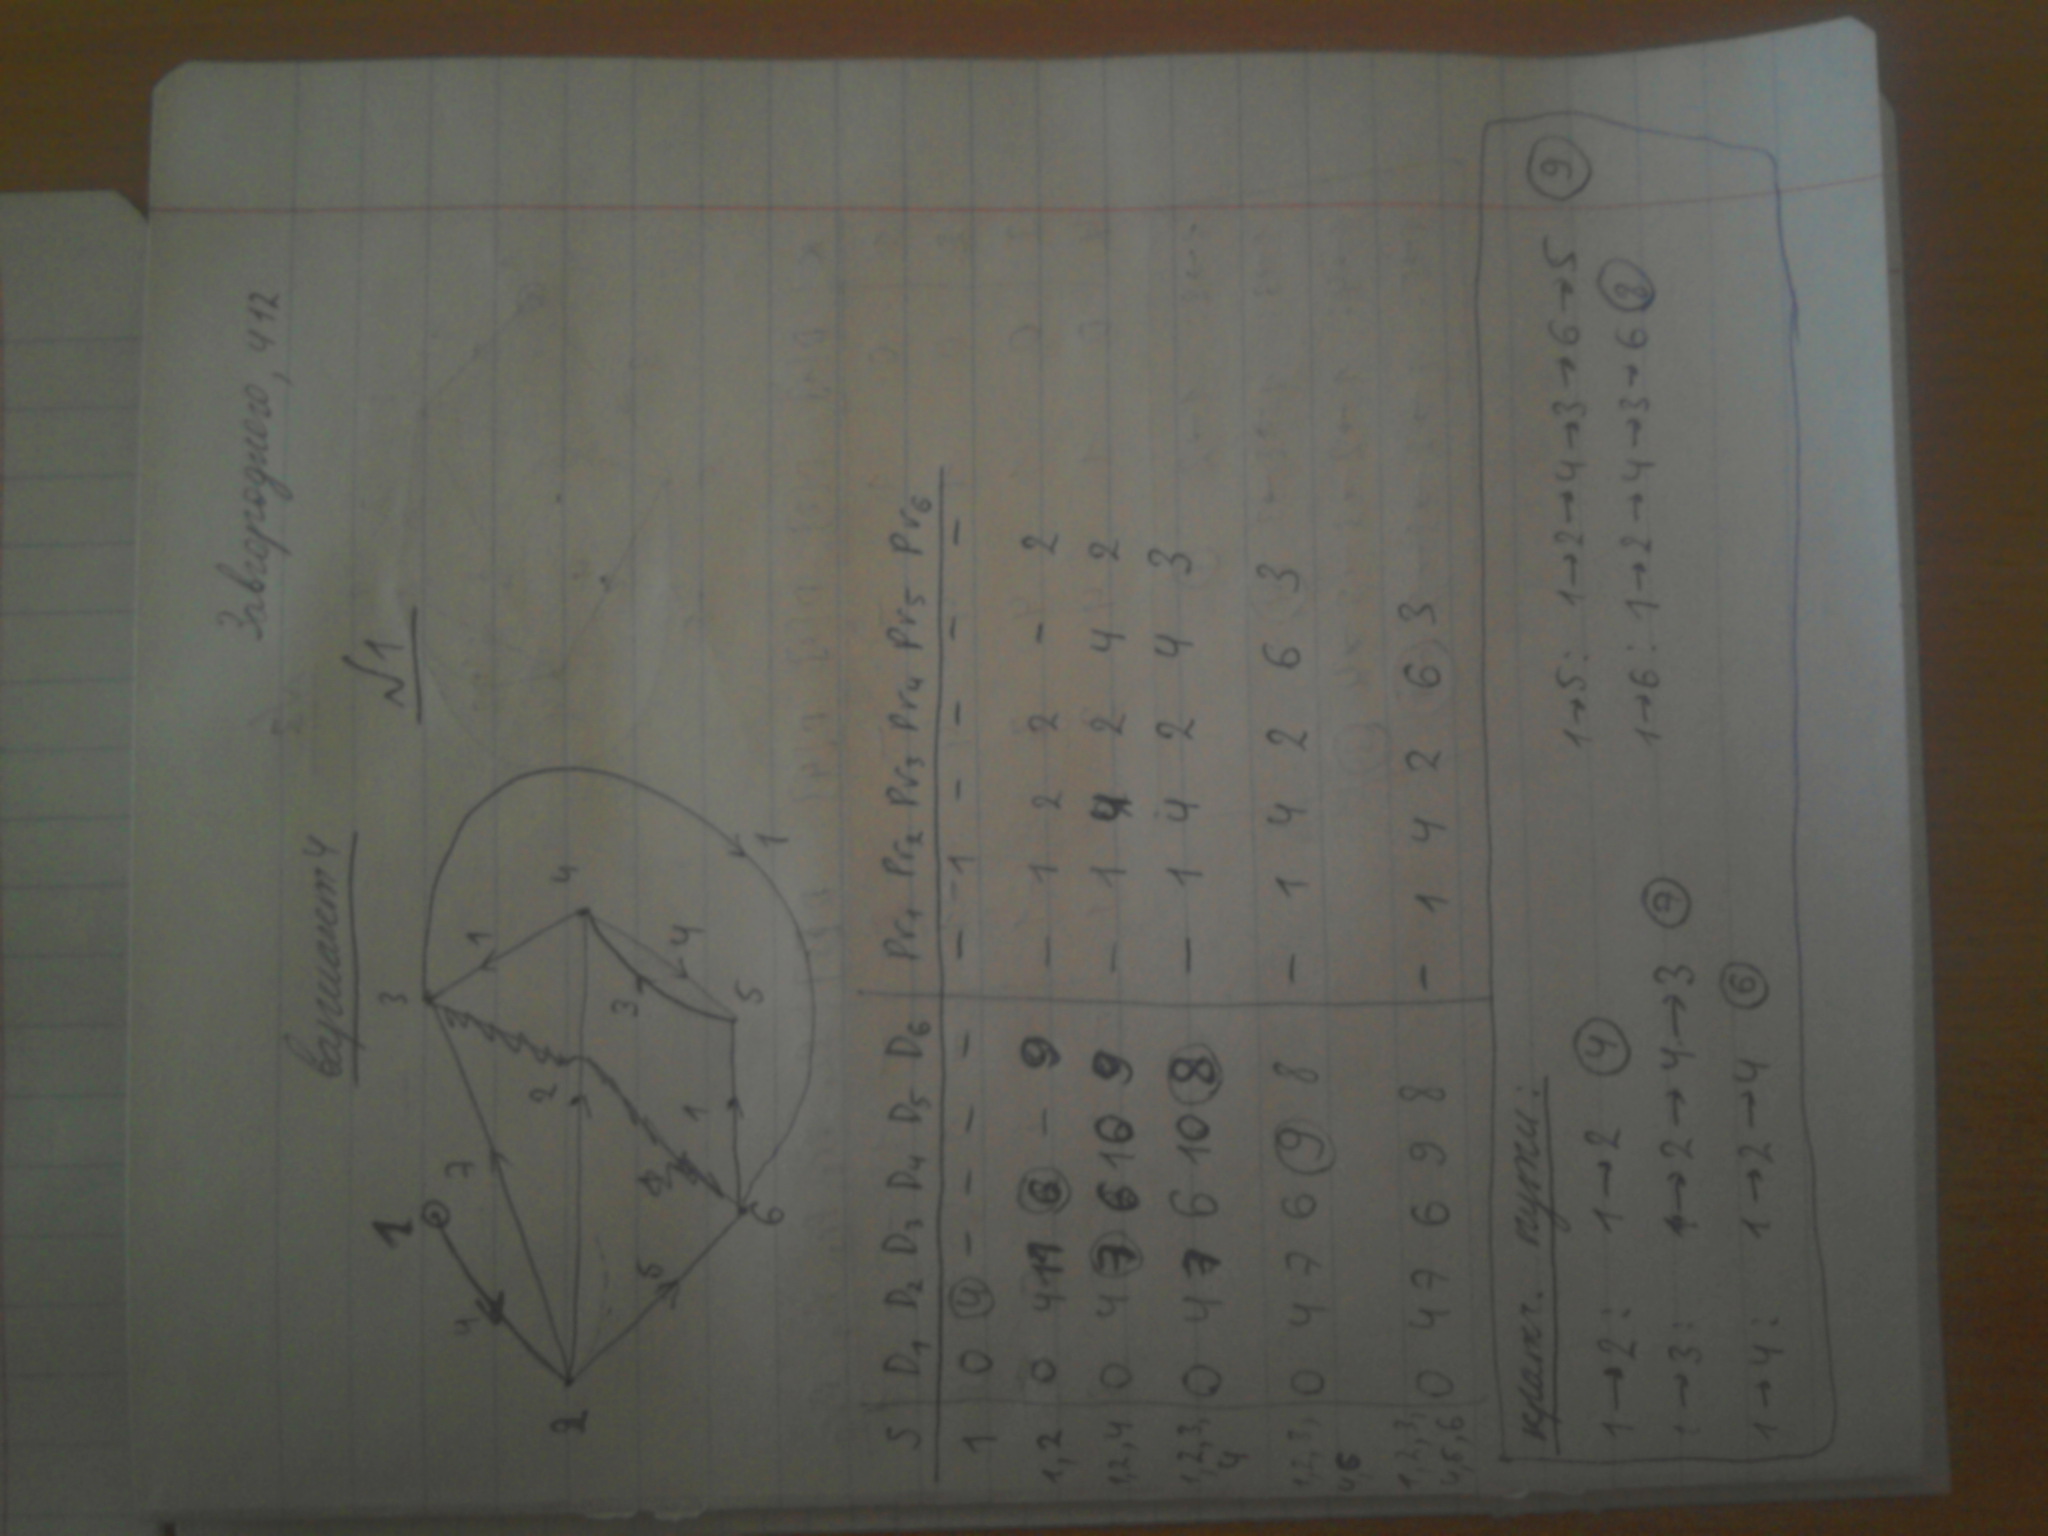 Завгородного, 412
вариант 4
№1
1
2
3
4
5
6
4
7
2
5
1
3
4
1
1
S D1 D2 D3 D4 D5 D6 Pr1 Pr2 Pr3 Pr4 Pr5 Pr6
1 0 4 - - - - - 1 - - - -
1,2 0 4 11 6 - 9 - 1 2 2 - 2
1,2,4 0 4 7 6 10 9 - 1 4 2 4 2
1,2,3,4 0 4 7 6 10 8 - 1 4 2 4 3
1,2,3,4,6 0 4 7 6 9 8 - 1 4 2 6 3
1,2,3,4,5,6 0 4 7 6 9 8 - 1 4 2 6 3
кратч. пути:
1→2: 1→2 4 1→5: 1→2→4→3→6→5 9
1→3: 1→2→4→3 7 1→6: 1→2→4→3→6 8
1→4: 1→2→4 6